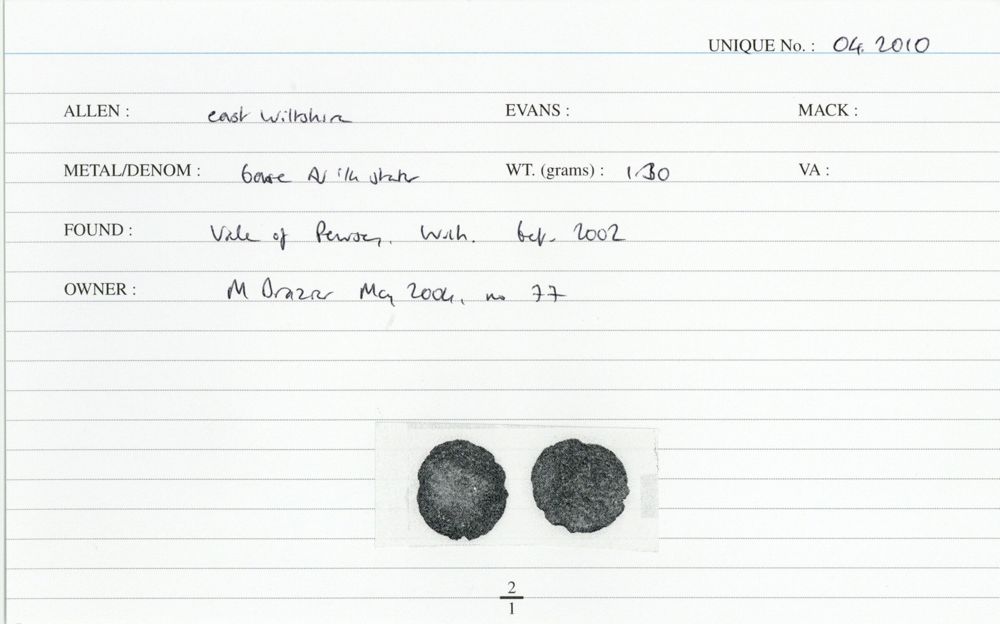 UNIQUE No. : 04. 2010
ALLEN : east Wiltshire EVANS : MACK :
METAL/DENOM : base stater WT. (grams) : 1.30 VA :
FOUND : Vale of Pewsey, Wilts. bef. 2002
OWNER : M Brazier May 2004, no 77
2
1